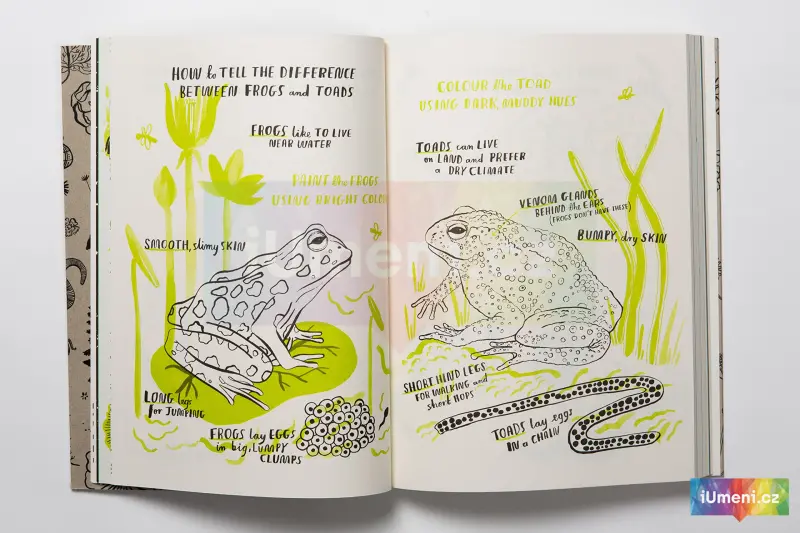 HOW to TELL THE DIFFERENCE
BETWEEN FROGS and TOADS
FROGS like TO LIVE
NEAR WATER
PAINT the FROGS
USING BRIGHT
SMOOTH, slimy SKIN
LONG legs
for JUMPING
FROGS lay EGGS
in big, LUMPY
CLUMPS
COLOUR the TOAD
USING DARK, MUDDY HUES
TOADS can LIVE
on LAND and PREFER
a DRY CLIMATE
VENOM GLANDS
BEHIND the EARS
(FROGS DON'T HAVE THESE)
BUMPY, dry SKIN
SHORT HIND LEGS
FOR WALKING and
short HOPS
TOADS lay eggs
IN a CHAIN
iUmeni.cz